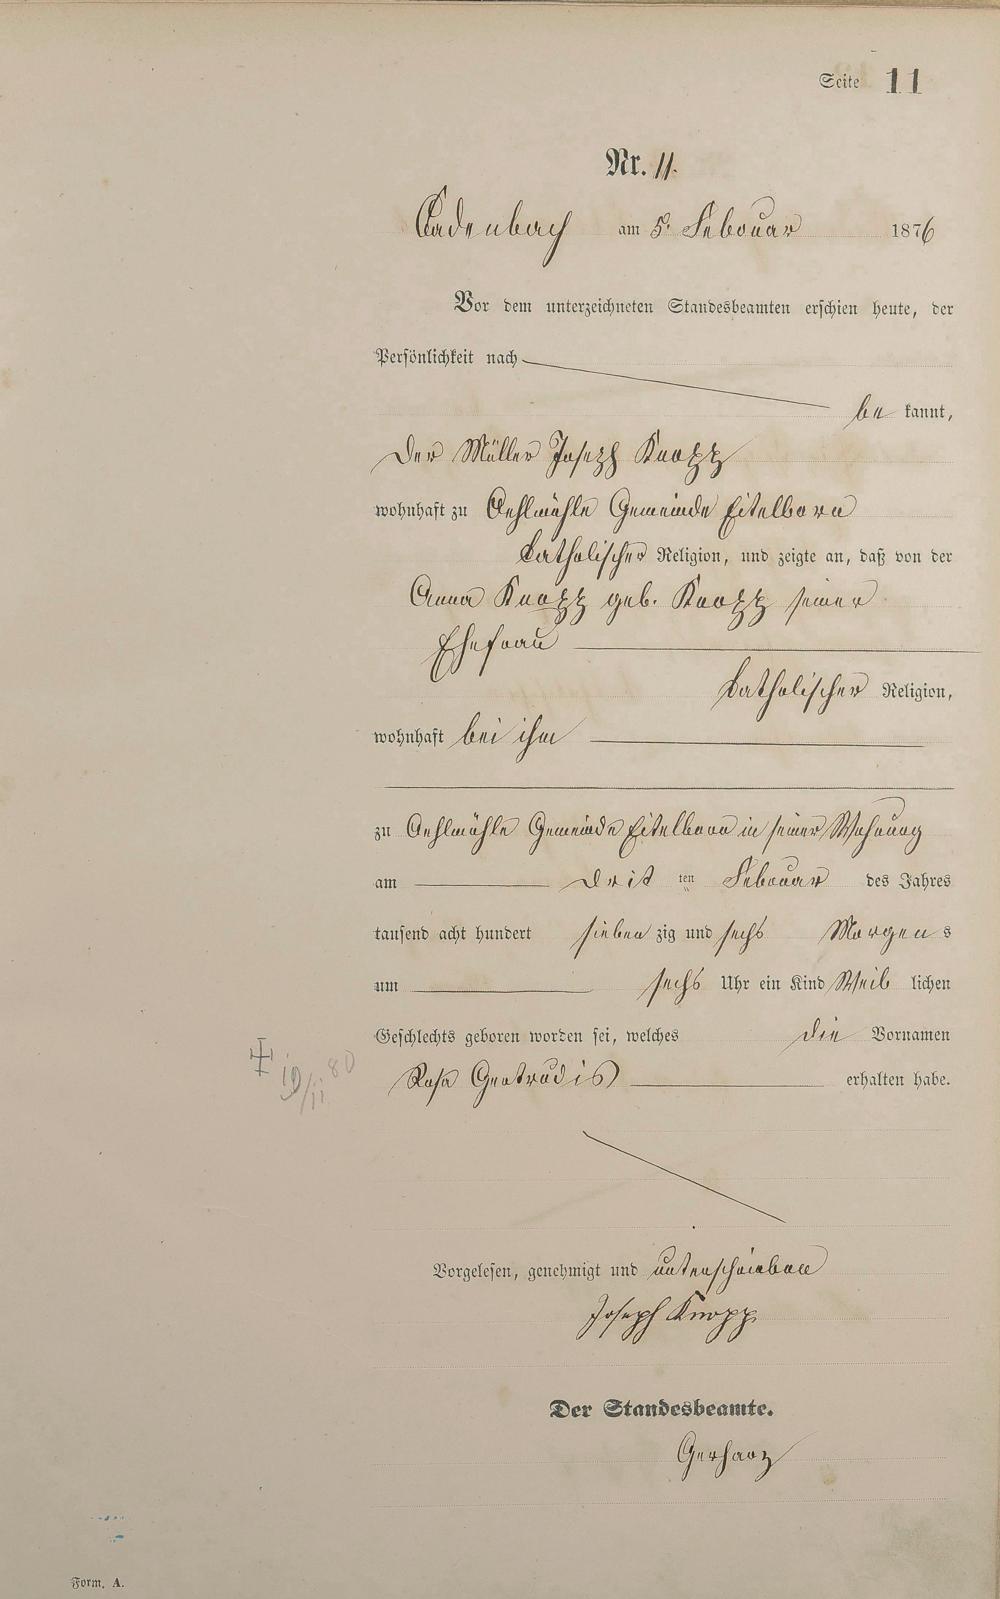 Seite 11
Nr. 11.
Cadenbach am 5. Februar 1876
Vor dem unterzeichneten Standesbeamten erschien heute, der
Persönlichkeit nach
be kannt,
der Müller Joseph Knopp
wohnhaft zu Oehlmühle Gemeinde Eitelborn
katholischer Religion, und zeigte an, daß von der
Anna Knopp geb. Knopp seiner
Ehefrau
katholischer Religion,
wohnhaft bei ihm
zu Oehlmühle Gemeinde Eitelborn in seiner Wohnung
am drit ten Februar des Jahres
tausend acht hundert sieben zig und sechs Morgen s
um sechs Uhr ein Kind Weib lichen
Geschlechts geboren worden sei, welches die Vornamen
Rosa Gertrudis erhalten habe.
19/11 80
Vorgelesen, genehmigt und unterschrieben
Joseph Knopp
Der Standesbeamte.
Gerharz
Form. A.